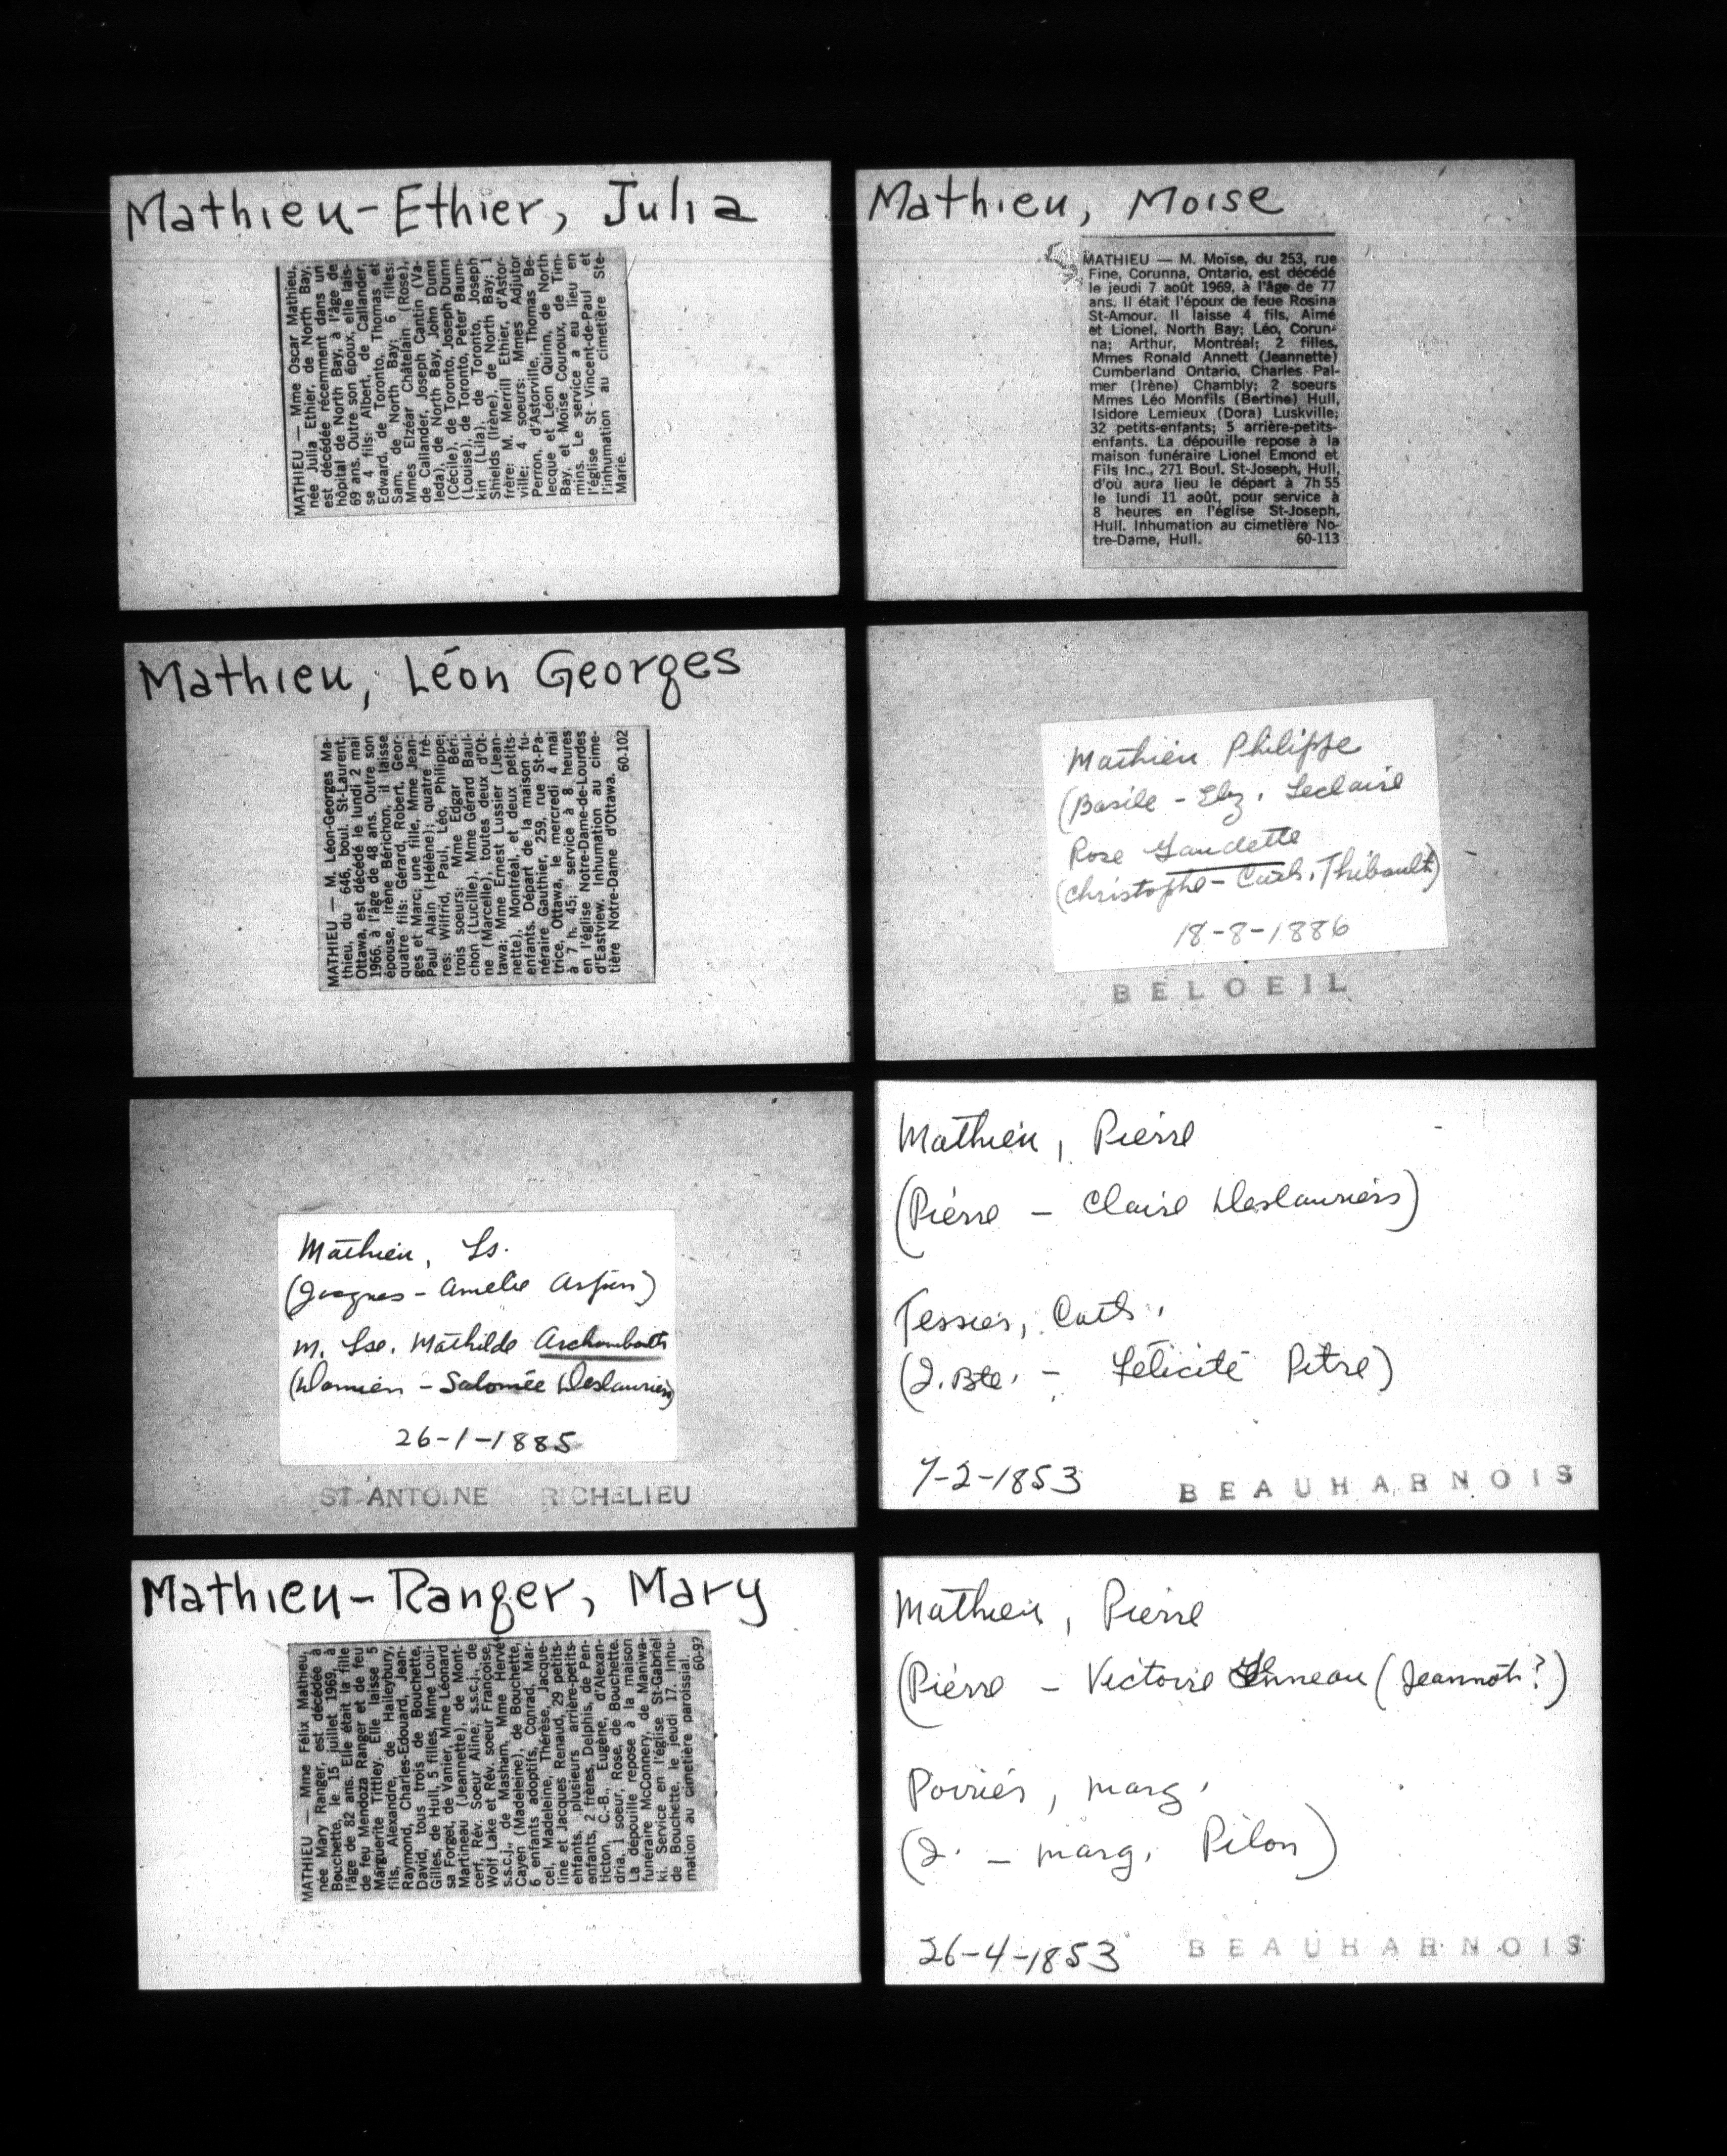 Mathieu-Ethier, Julia
MATHIEU — Mme Oscar Mathieu,
née Julia Ethier, de North Bay,
est décédée récemment dans un
hôpital de North Bay, à l'âge de
69 ans. Outre son époux, elle lais-
se 4 fils: Albert, de Callander,
Edward, de Toronto, Thomas et
Sam, de North Bay; 6 filles:
Mmes Elzéar Châtelain (Rose),
de Callander, Joseph Cantin (Va-
leda), de North Bay, John Dunn
(Cécile), de Toronto, Joseph Dunn
(Louise), de Toronto, Peter Baum-
kin (Lila), de Toronto, Joseph
Shields (Irène), de North Bay; 1
frère: M. Merrill Ethier, d'Astor-
ville; 4 soeurs: Mmes Adjutor
Perron, d'Astorville, Thomas Be-
lecque et Léon Quinn, de North
Bay, et Moïse Couroux, de Tim-
mins. Le service a eu lieu en
l'église St-Vincent-de-Paul et
l'inhumation au cimetière Ste-
Marie.
Mathieu, Moise
MATHIEU — M. Moïse, du 253, rue
Fine, Corunna, Ontario, est décédé
le jeudi 7 août 1969, à l'âge de 77
ans. Il était l'époux de feue Rosina
St-Amour. Il laisse 4 fils, Aimé
et Lionel, North Bay; Léo, Corun-
na; Arthur, Montréal; 2 filles,
Mmes Ronald Annett (Jeannette)
Cumberland Ontario, Charles Pal-
mer (Irène) Chambly; 2 soeurs
Mmes Léo Monfils (Bertine) Hull,
Isidore Lemieux (Dora) Luskville;
32 petits-enfants; 5 arrière-petits-
enfants. La dépouille repose à la
maison funéraire Lionel Emond et
Fils Inc., 271 Boul. St-Joseph, Hull,
d'où aura lieu le départ à 7h 55
le lundi 11 août, pour service à
8 heures en l'église St-Joseph,
Hull. Inhumation au cimetière No-
tre-Dame, Hull. 60-113
Mathieu, Léon Georges
MATHIEU — M. Léon-Georges Ma-
thieu, du 646, boul. St-Laurent,
Ottawa, est décédé le lundi 2 mai
1966, à l'âge de 48 ans. Outre son
épouse, Irène Bérichon, il laisse
quatre fils: Gérard, Robert, Geor-
ges et Marc; une fille, Mme Jean-
Paul Alain (Hélène); quatre frè-
res: Wilfrid, Paul, Léo, Philippe;
trois soeurs: Mme Edgar Béri-
chon (Lucille), Mme Gérard Baul-
ne (Marcelle), toutes deux d'Ot-
tawa; Mme Ernest Lussier (Jean-
nette), Montréal, et deux petits-
enfants. Départ de la maison fu-
néraire Gauthier, 259, rue St-Pa-
trice, Ottawa, le mercredi 4 mai
à 7 h. 45; service à 8 heures
en l'église Notre-Dame-de-Lourdes
d'Eastview. Inhumation au cime-
tière Notre-Dame d'Ottawa.
60-102
Mathieu Philippe
(Basile - Elz. Leclaire
Rose Gaudette
(Christophe - Cath. Thibault)
18-8-1886
BELOEIL
Mathieu, Ls.
(Jacques - Amelie Arpin)
m. Lse. Mathilde Archambault
(Damien - Salomée Deslauriers)
26-1-1885
ST ANTOINE RICHELIEU
Mathieu, Pierre
(Pierre - Claire Deslauriers)
Tessier, Cath.
(J. Bte. - Félicité Pitre)
7-2-1853
BEAUHARNOIS
Mathieu-Ranger, Mary
MATHIEU — Mme Félix Mathieu,
née Mary Ranger, est décédée à
Bouchette, le 15 juillet 1969, à
l'âge de 82 ans. Elle était la fille
de feu Mendoza Ranger et de feu
Marguerite Tittley. Elle laisse 5
fils, Alexandre, de Haileybury,
Raymond, Charles-Edouard, Jean-
David, tous trois de Bouchette,
Gilles, de Hull, 5 filles, Mme Loui-
sa Forget, de Vanier, Mme Léonard
Martineau (Jeannette), de Mont-
cerf, Rév. Soeur Aline, s.s.c.j., de
Wolf Lake et Rév. soeur Françoise,
s.s.c.j., de Masham, Mme Hervé
Cayen (Madeleine), de Bouchette,
6 enfants adoptifs, Conrad, Mar-
cel, Madeleine, Thérèse, Jacque-
line et Jacques Renaud, 29 petits-
enfants, plusieurs arrière-petits-
enfants, 2 frères, Delphis, de Pen-
ticton, C.-B., Eugène, d'Alexan-
dria, 1 soeur, Rose, de Bouchette.
La dépouille repose à la maison
funéraire McConnery, de Maniwa-
ki. Service en l'église St-Gabriel
de Bouchette, le jeudi 17. Inhu-
mation au cimetière paroissial.
60-97
Mathieu, Pierre
(Pierre - Victoire Enneau (Jeannot?)
Poirier, Marg.
(J. - Marg. Pilon)
26-4-1853
BEAUHARNOIS